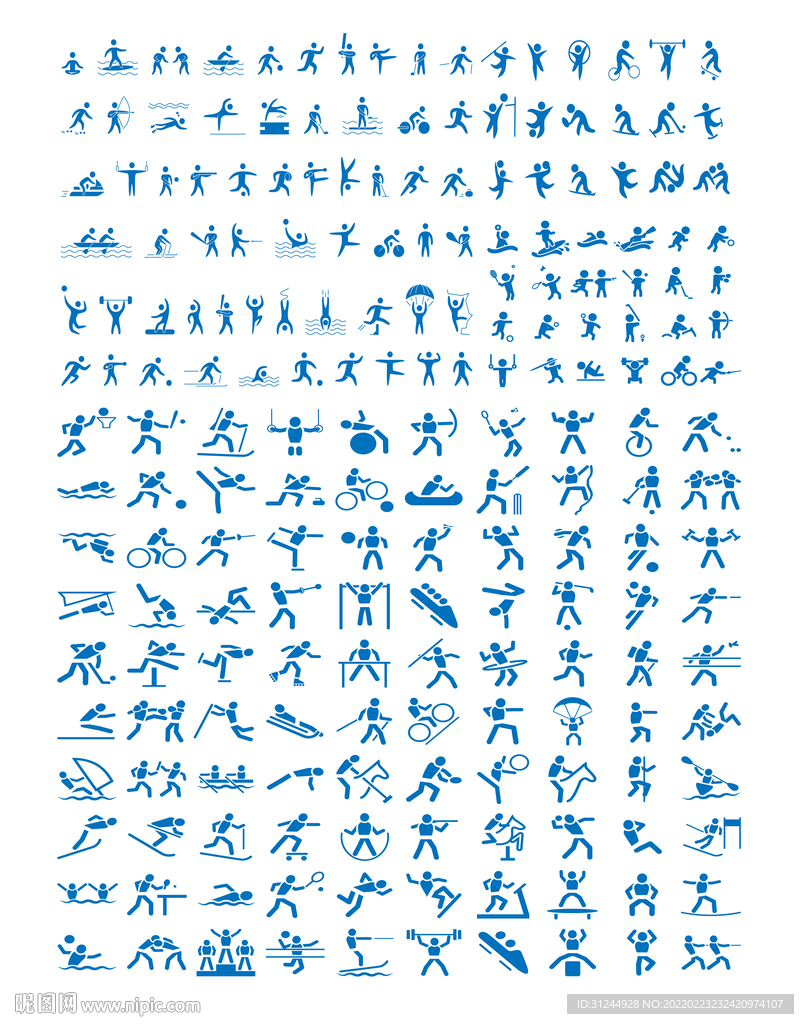 昵图网 www.nipic.com
ID:31244928 NO:20220223232420974107